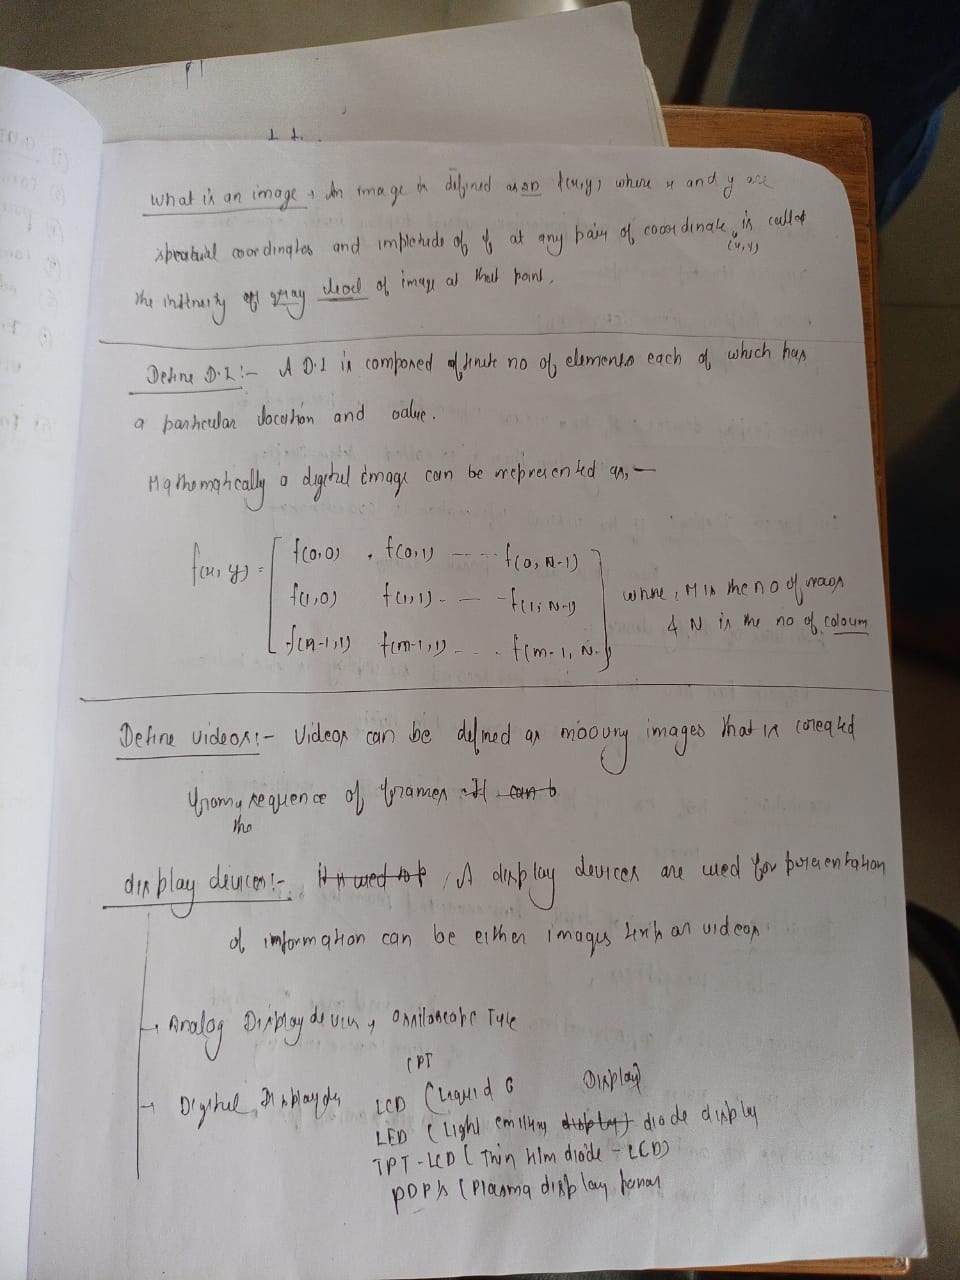 What is an image → An image is defined as 2D f(x,y) where x and y are
spreatual coordinates and impletude of f at any pair of cooordinate (x,y) is called
the intensity of gray level of image at that point.
Define D.I :- A D.I is composed of finite no of elements each of which has
a particular location and value.
Mathematically a digital image can be represented as, —
f(x, y) = [ f(0,0) . f(0,1) ---- f(0, N-1)
f(1,0) f(1,1) - - - f(1, N-1)
f(M-1,1) f(m-1,1) - - . f(m-1, N- ]
where, M is the no of raows
& N is the no of coloum
Define videos :- Videos can be defined as moovng images that is created
from the sequence of frames It can b
display devices :- it is used to p A display devices are used for porsentation
of information can be either images or videos
→ Analog Display device → Tyle
CPT
→ Digital Display de LCD (Liquid C Display)
LED (Light emitting display) diode display
TPT-LCD (Thin film diode - LCD)
PDP's (Plasma display